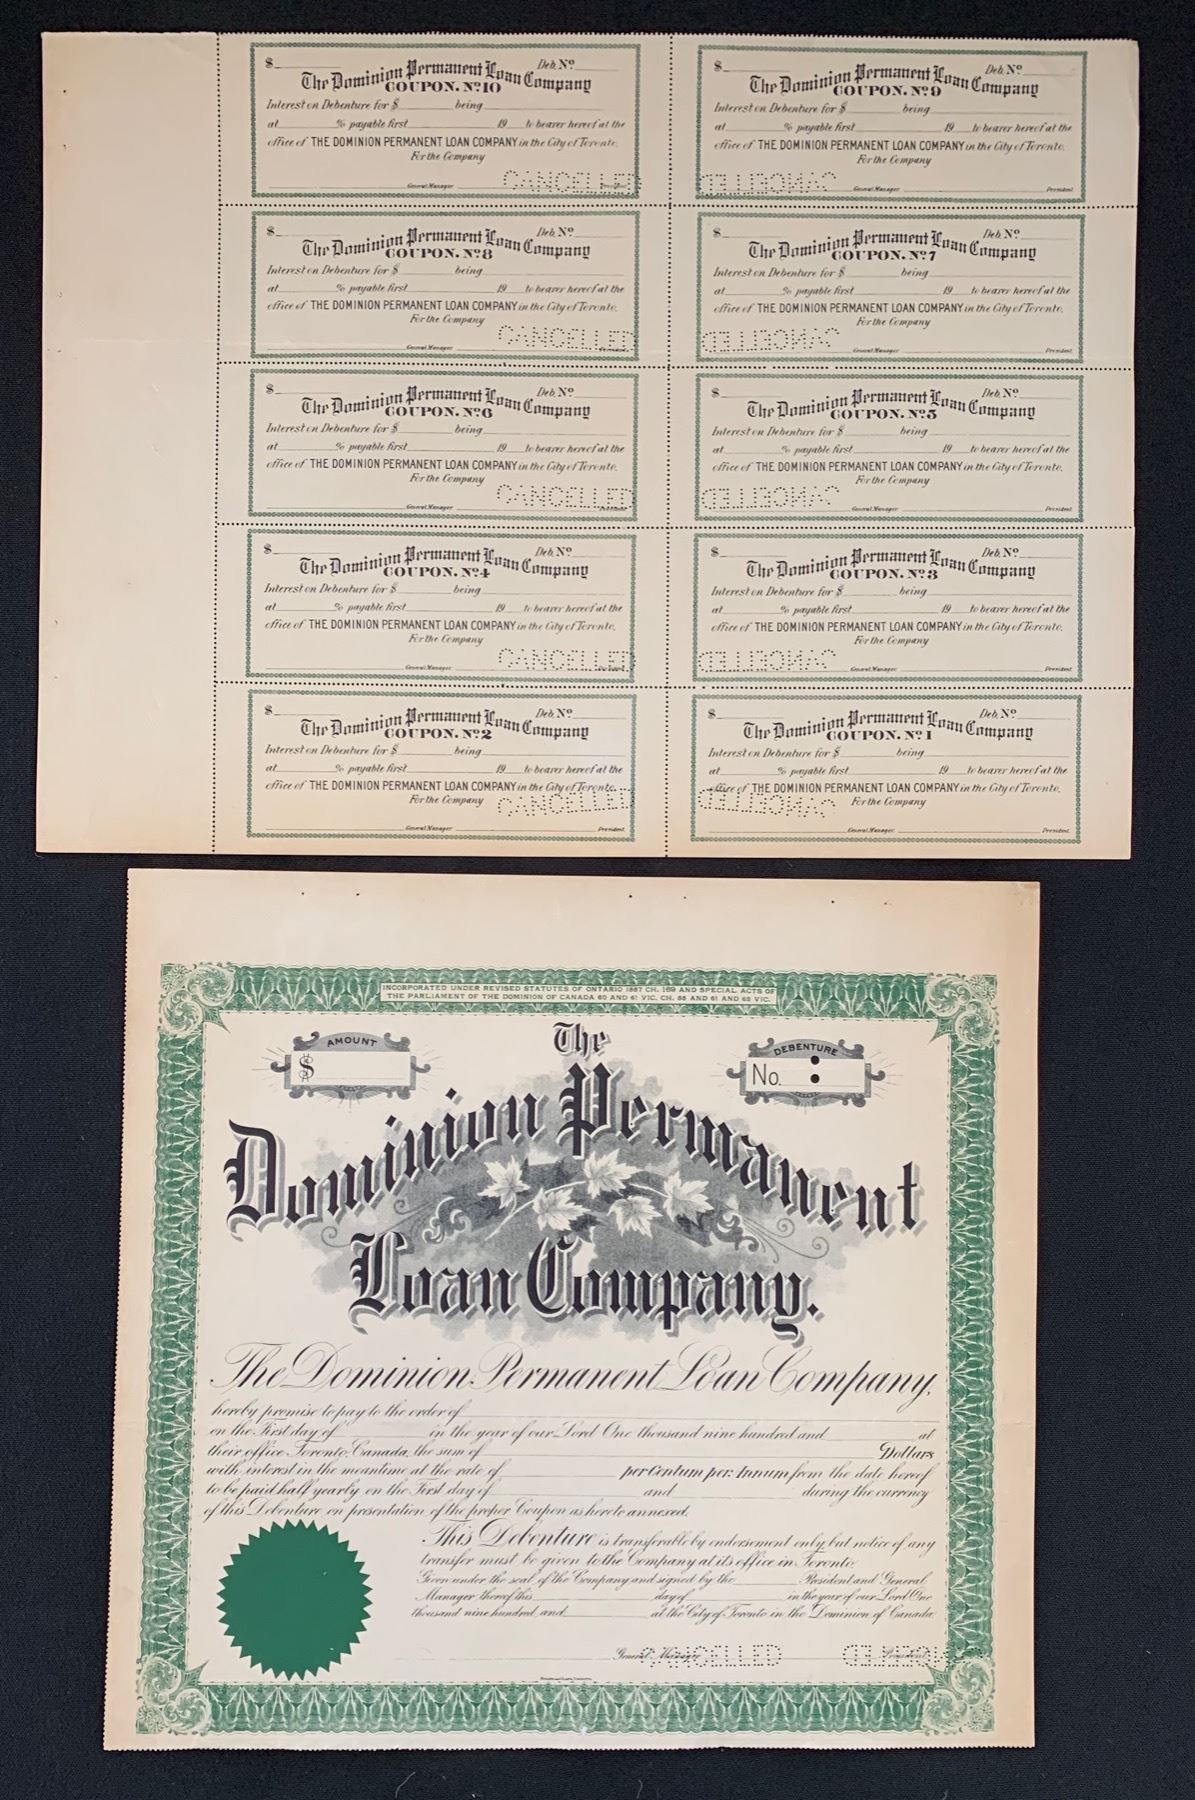 $ Deb. No
The Dominion Permanent Loan Company
COUPON. No 10
Interest on Debenture for $ being
at % payable first 19 to bearer hereof at the
office of THE DOMINION PERMANENT LOAN COMPANY in the City of Toronto.
For the Company
General Manager President
CANCELLED
$ Deb. No
The Dominion Permanent Loan Company
COUPON. No 9
Interest on Debenture for $ being
at % payable first 19 to bearer hereof at the
office of THE DOMINION PERMANENT LOAN COMPANY in the City of Toronto.
For the Company
General Manager President
CANCELLED
$ Deb. No
The Dominion Permanent Loan Company
COUPON. No 8
Interest on Debenture for $ being
at % payable first 19 to bearer hereof at the
office of THE DOMINION PERMANENT LOAN COMPANY in the City of Toronto.
For the Company
General Manager
CANCELLED
$ Deb. No
The Dominion Permanent Loan Company
COUPON. No 7
Interest on Debenture for $ being
at % payable first 19 to bearer hereof at the
office of THE DOMINION PERMANENT LOAN COMPANY in the City of Toronto.
For the Company
General Manager President
CANCELLED
$ Deb. No
The Dominion Permanent Loan Company
COUPON. No 6
Interest on Debenture for $ being
at % payable first 19 to bearer hereof at the
office of THE DOMINION PERMANENT LOAN COMPANY in the City of Toronto.
For the Company
General Manager President
CANCELLED
$ Deb. No
The Dominion Permanent Loan Company
COUPON. No 5
Interest on Debenture for $ being
at % payable first 19 to bearer hereof at the
office of THE DOMINION PERMANENT LOAN COMPANY in the City of Toronto.
For the Company
General Manager President
CANCELLED
$ Deb. No
The Dominion Permanent Loan Company
COUPON. No 4
Interest on Debenture for $ being
at % payable first 19 to bearer hereof at the
office of THE DOMINION PERMANENT LOAN COMPANY in the City of Toronto.
For the Company
General Manager
CANCELLED
$ Deb. No
The Dominion Permanent Loan Company
COUPON. No 3
Interest on Debenture for $ being
at % payable first 19 to bearer hereof at the
office of THE DOMINION PERMANENT LOAN COMPANY in the City of Toronto.
For the Company
General Manager President
CANCELLED
$ Deb. No
The Dominion Permanent Loan Company
COUPON. No 2
Interest on Debenture for $ being
at % payable first 19 to bearer hereof at the
office of THE DOMINION PERMANENT LOAN COMPANY in the City of Toronto.
For the Company
CANCELLED
General Manager President
$ Deb. No
The Dominion Permanent Loan Company
COUPON. No 1
Interest on Debenture for $ being
at % payable first 19 to bearer hereof at the
office of THE DOMINION PERMANENT LOAN COMPANY in the City of Toronto.
For the Company
CANCELLED
General Manager President
INCORPORATED UNDER REVISED STATUTES OF ONTARIO 1887 CH. 169 AND SPECIAL ACTS OF
THE PARLIAMENT OF THE DOMINION OF CANADA 60 AND 61 VIC. CH. 85 AND 61 AND 62 VIC.
AMOUNT
$
DEBENTURE
No.
The
Dominion Permanent
Loan Company.
The Dominion Permanent Loan Company,
hereby promise to pay to the order of
on the First day of in the year of our Lord One thousand nine hundred and at
their office Toronto, Canada, the sum of Dollars
with interest in the meantime at the rate of per Centum per Annum from the date hereof
to be paid half yearly on the First day of and during the currency
of this Debenture on presentation of the proper Coupon as hereto annexed.
This Debenture is transferable by endorsement only but notice of any
transfer must be given to the Company at its office in Toronto.
Given under the seal of the Company and signed by the President and General
Manager thereof this day of in the year of our Lord One
thousand nine hundred and at the City of Toronto in the Dominion of Canada.
General Manager President
CANCELLED CANCELLED